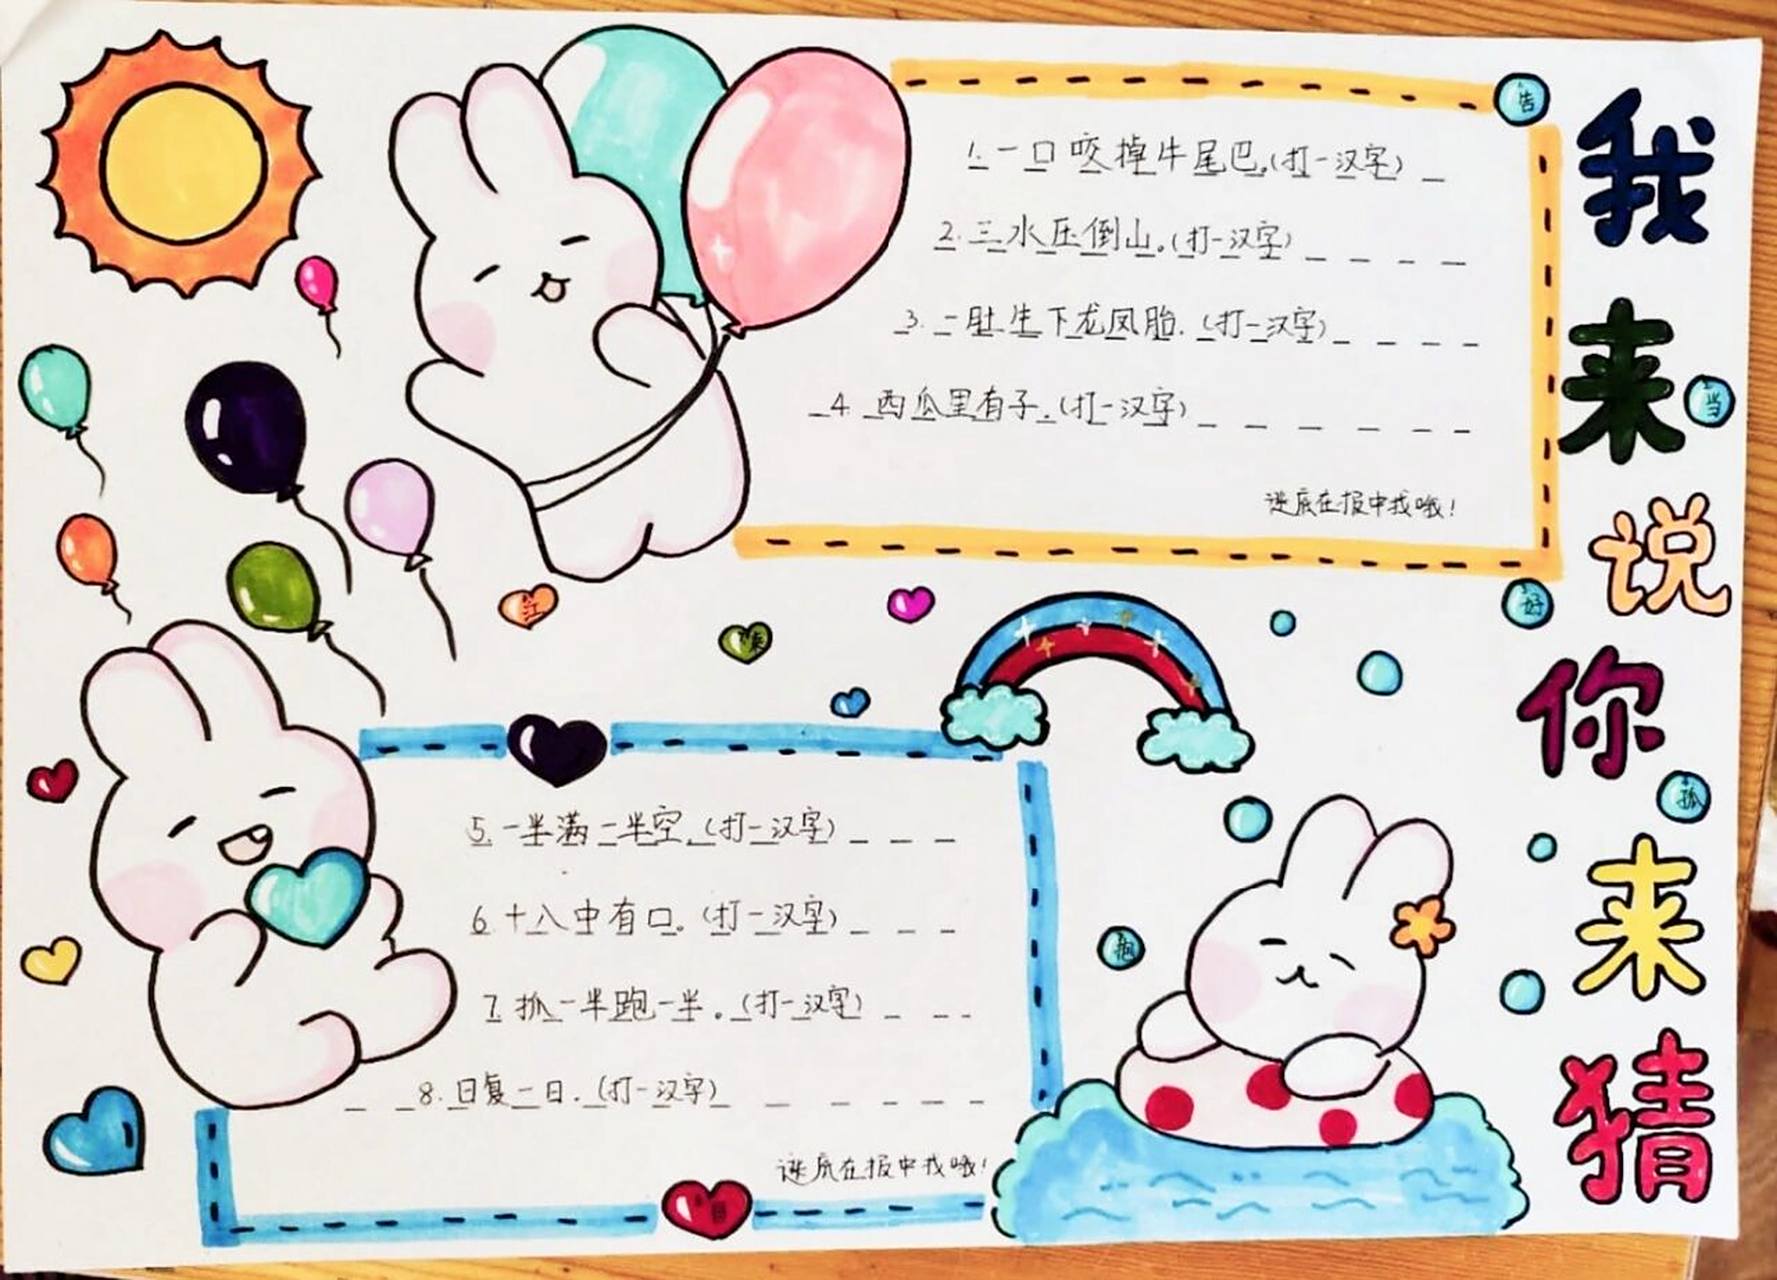 我来说你来猜
告
1.一口咬掉牛尾巴.(打一汉字)
2.三水压倒山.(打一汉字)
3.一肚生下龙凤胎.(打一汉字)
4.西瓜里有子.(打一汉字)
谜底在报中找哦!
当
好
江
孤
5.一半满一半空.(打一汉字)
6.十八中有口.(打一汉字)
7.抓一半跑一半.(打一汉字)
8.日复一日.(打一汉字)
谜底在报中找哦!